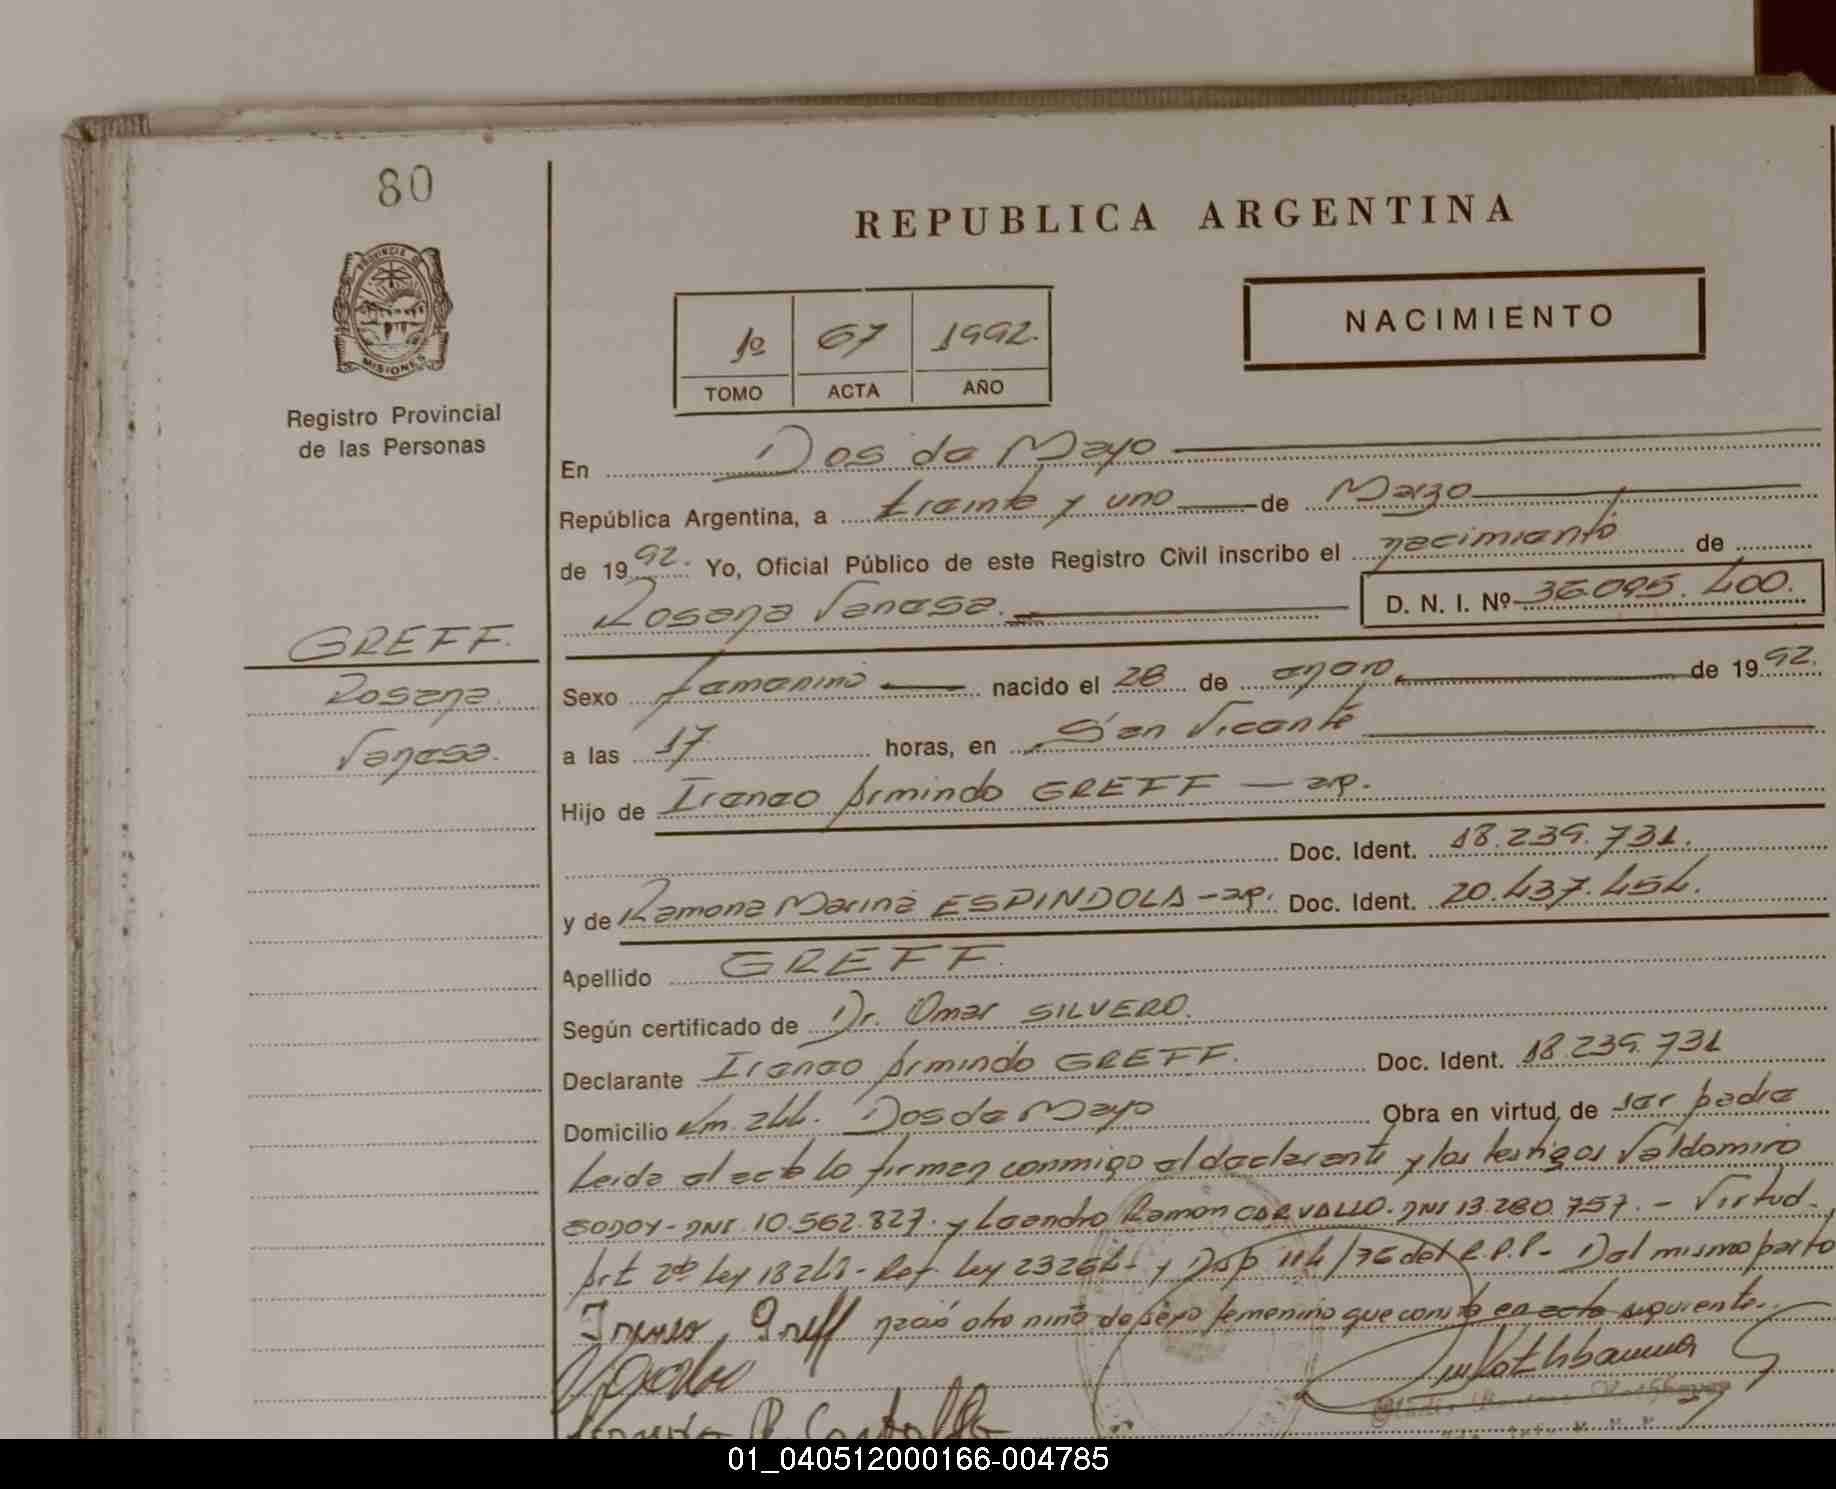 80
REPUBLICA ARGENTINA
PROVINCIA DE
MISIONES
Registro Provincial
de las Personas
1º 67 1992.
TOMO ACTA AÑO
NACIMIENTO
En Dos de Mayo
República Argentina, a treinta y uno de Marzo
de 1992. Yo, Oficial Público de este Registro Civil inscribo el nacimiento de
Rosana Vanesa. D. N. I. Nº 36.095.400.
GREFF.
Rosana
Vanesa.
Sexo femenino nacido el 28 de enero de 1992.
a las 17 horas, en San Vicente
Hijo de Ireneo Armindo GREFF — ap.
Doc. Ident. 18.239.731.
y de Ramona Marina ESPINDOLA - ap. Doc. Ident. 20.437.454.
Apellido GREFF.
Según certificado de Dr. Omar SILVERO.
Declarante Ireneo Armindo GREFF. Doc. Ident. 18.239.731
Domicilio Km. 244. Dos de Mayo Obra en virtud de ser padre
Leida el acta lo firman conmigo el declarante y los testigos Valdomiro
GODOY - DNI 10.562.827. y Leandro Ramón CARVALLO. DNI 13.280.757. - Virtud.
Art 2do Ley 18248 - Ref Ley 23264 - y Disp 114/76 del R.P.P. - Del mismo parto
Ireneo Greff nació otro niño de sexo femenino que consta en acta siguiente.
01_040512000166-004785